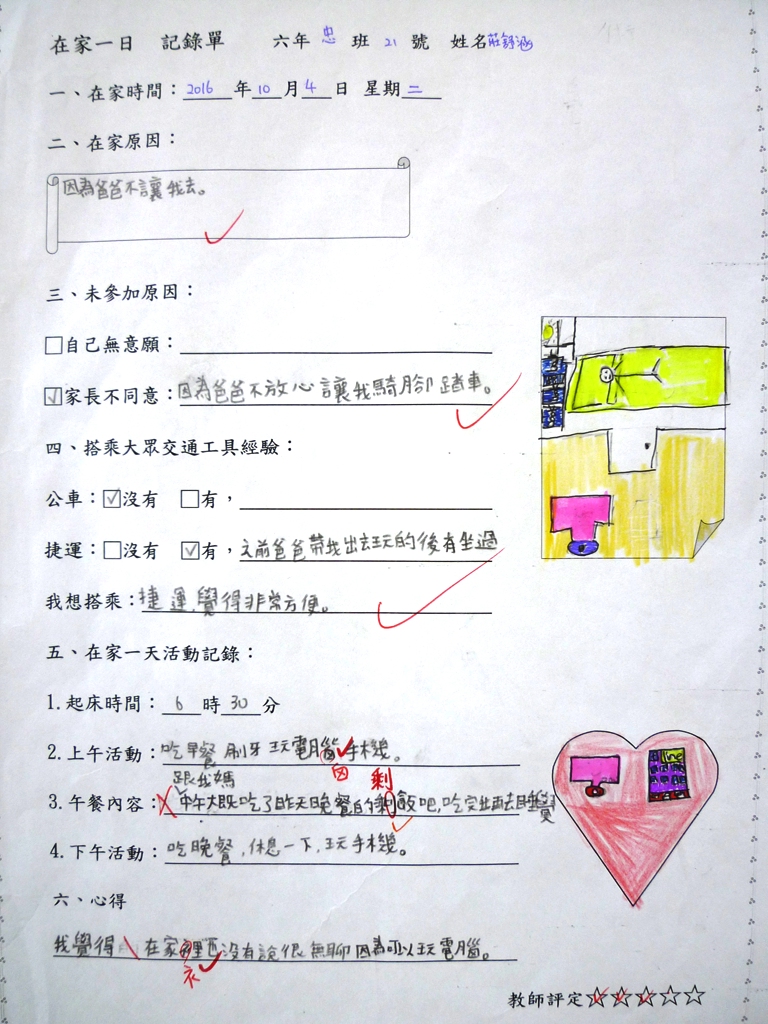 在家一日 記錄單 六年 忠 班 21 號 姓名莊舒涵
一、在家時間：2016年10月4日 星期二
二、在家原因：
因為爸爸不讓我去。
三、未參加原因：
□自己無意願：
☑家長不同意：因為爸爸不放心讓我騎腳踏車。
四、搭乘大眾交通工具經驗：
公車：☑沒有 □有，
捷運：□沒有 ☑有，之前爸爸帶我出去玩的後有坐過
我想搭乘：捷運,覺得非常方便。
五、在家一天活動記錄：
1.起床時間：6時30分
2.上午活動：吃早餐刷牙玩電腦手機。
跟我媽 剩
3.午餐內容：中午大概吃了昨天晚餐的剩飯吧,吃完在去睡覺
4.下午活動：吃晚餐,休息一下,玩手機。
六、心得
我覺得在家裡沒有說很無聊因為可以玩電腦。
衣
教師評定☆☆☆☆☆
line